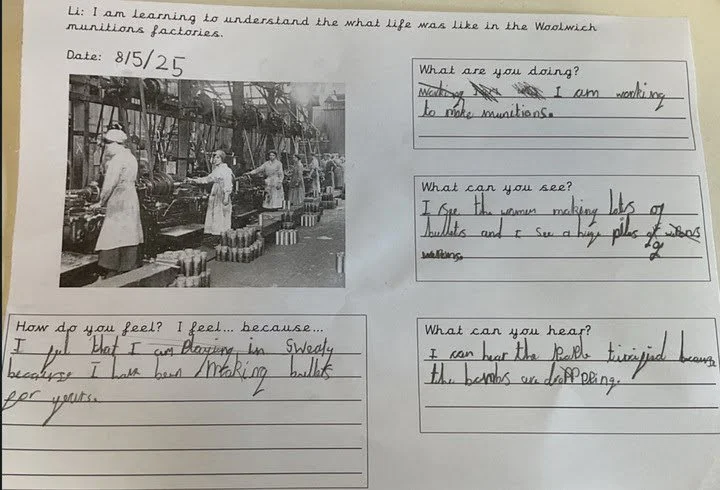 Li: I am learning to understand the what life was like in the Woolwich
munitions factories.
Date: 8/5/25
What are you doing?
I am working
to make munitions.
What can you see?
I see the women making lots of
bullets and I see a hige piles of
How do you feel? I feel... because...
I feel that I am in Sweaty
because I have been Making bullets
for years.
What can you hear?
I can hear the because
the bombs are droppping.